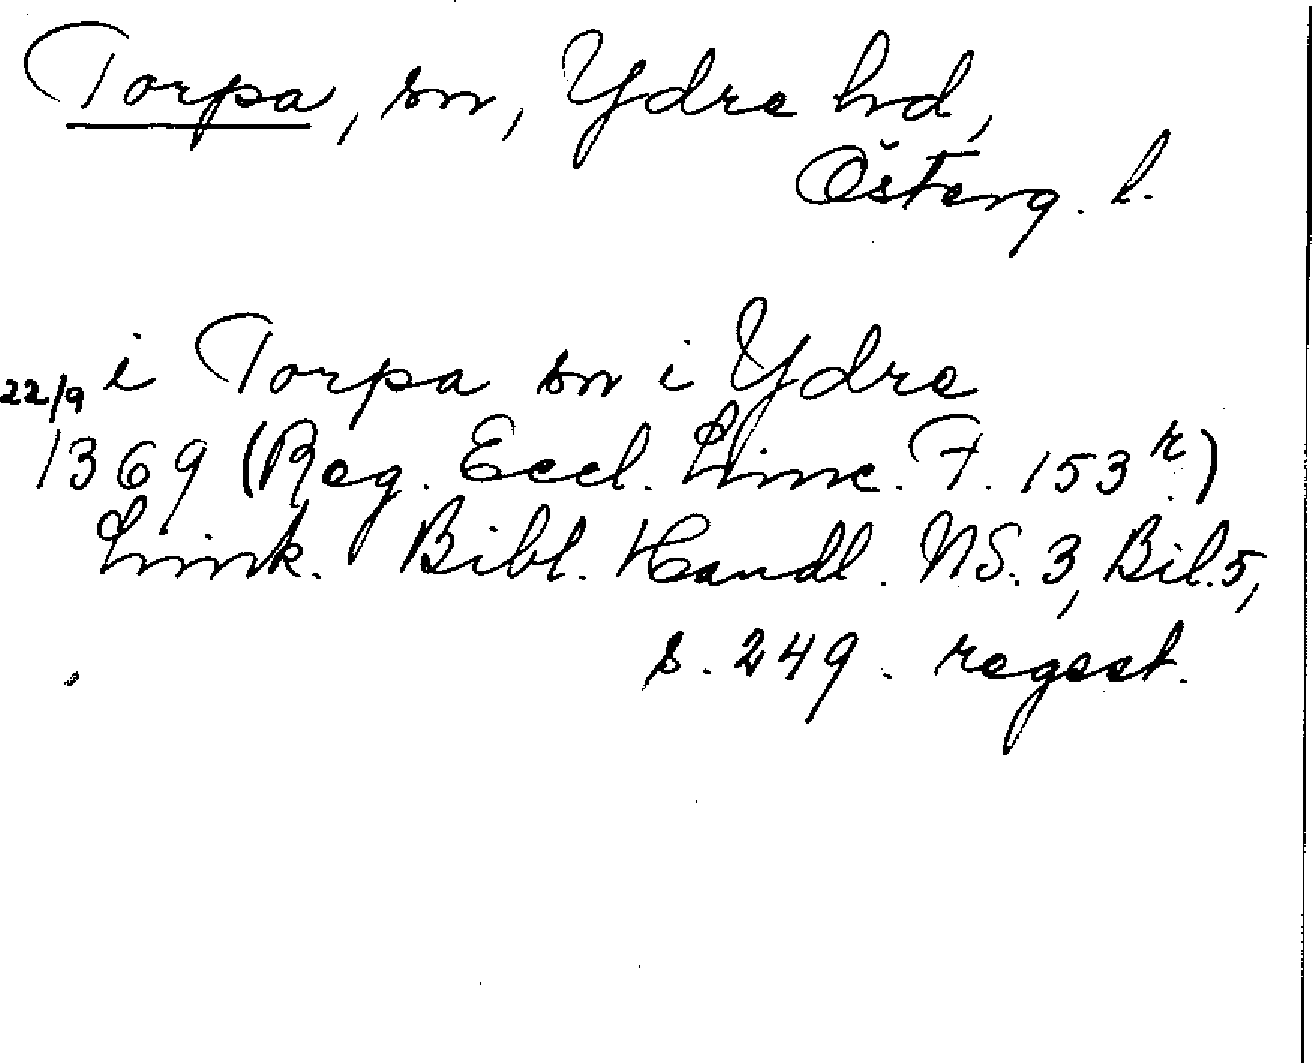 Torpa, sn, Ydre hd,
Österg. l.
i Torpa sn i Ydre
22/9 1369 (Reg. Eccl. Linc. F. 153 r.)
Link. Bibl. Handl. NS. 3, Bil. 5,
s. 249. regest.